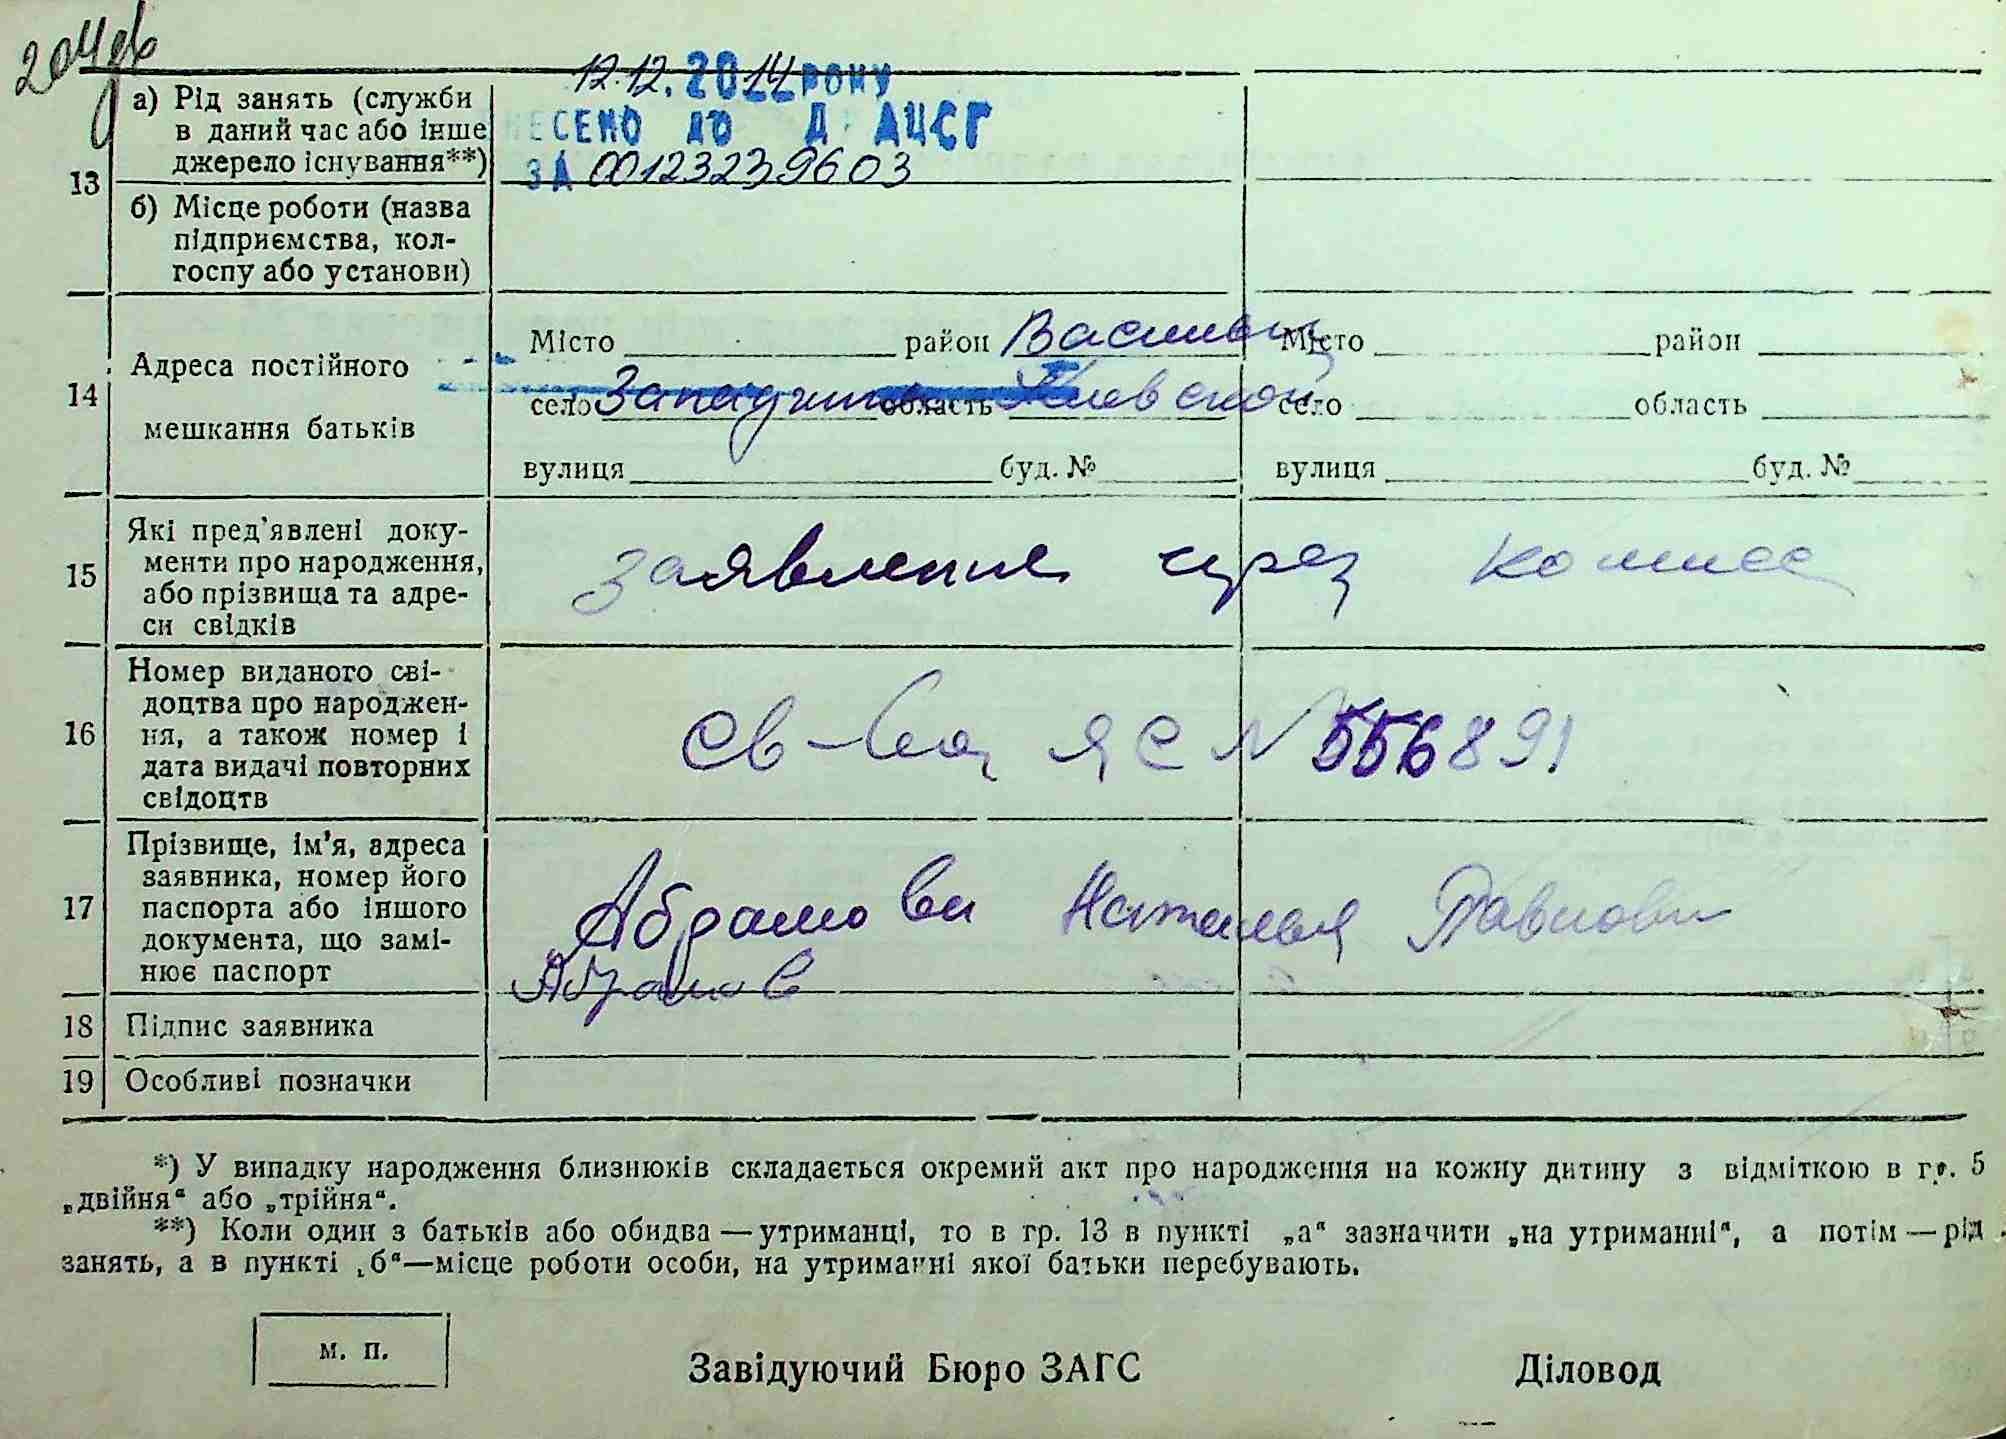 204
12.12.2014 року
НЕСЕНО ДО ДРАЦСГ
ЗА 001232239603
13
а) Рід занять (служби
в даний час або інше
джерело існування**)
б) Місце роботи (назва
підприємства, кол-
госпу або установи)
14
Адреса постійного
мешкання батьків
Місто район Васильк
село Западинка область Киевской
вулиця буд. №
Місто район
село область
вулиця буд. №
15
Які пред'явлені доку-
менти про народження,
або прізвища та адре-
си свідків
заявление через комисс
16
Номер виданого сві-
доцтва про народжен-
ня, а також номер і
дата видачі повторних
свідоцтв
св-во ЯС N 556891
17
Прізвище, ім'я, адреса
заявника, номер його
паспорта або іншого
документа, що замі-
нює паспорт
Абрамова Наталья Павловн
Абрамов
18 Підпис заявника
19 Особливі позначки
*) У випадку народження близнюків складається окремий акт про народження на кожну дитину з відміткою в гр. 5
„двійня“ або „трійня“.
**) Коли один з батьків або обидва — утриманці, то в гр. 13 в пункті „а“ зазначити „на утриманні“, а потім — рід
занять, а в пункті „б“—місце роботи особи, на утриманні якої батьки перебувають.
м. п.
Завідуючий Бюро ЗАГС
Діловод